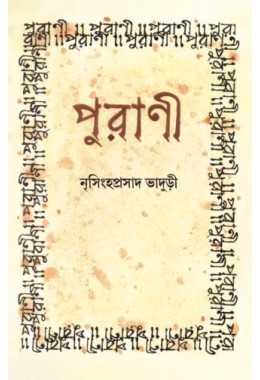 পুরাণী॥পুরাণী॥পুরাণী॥পুরাণী
পুরাণী
নৃসিংহপ্রসাদ ভাদুড়ী